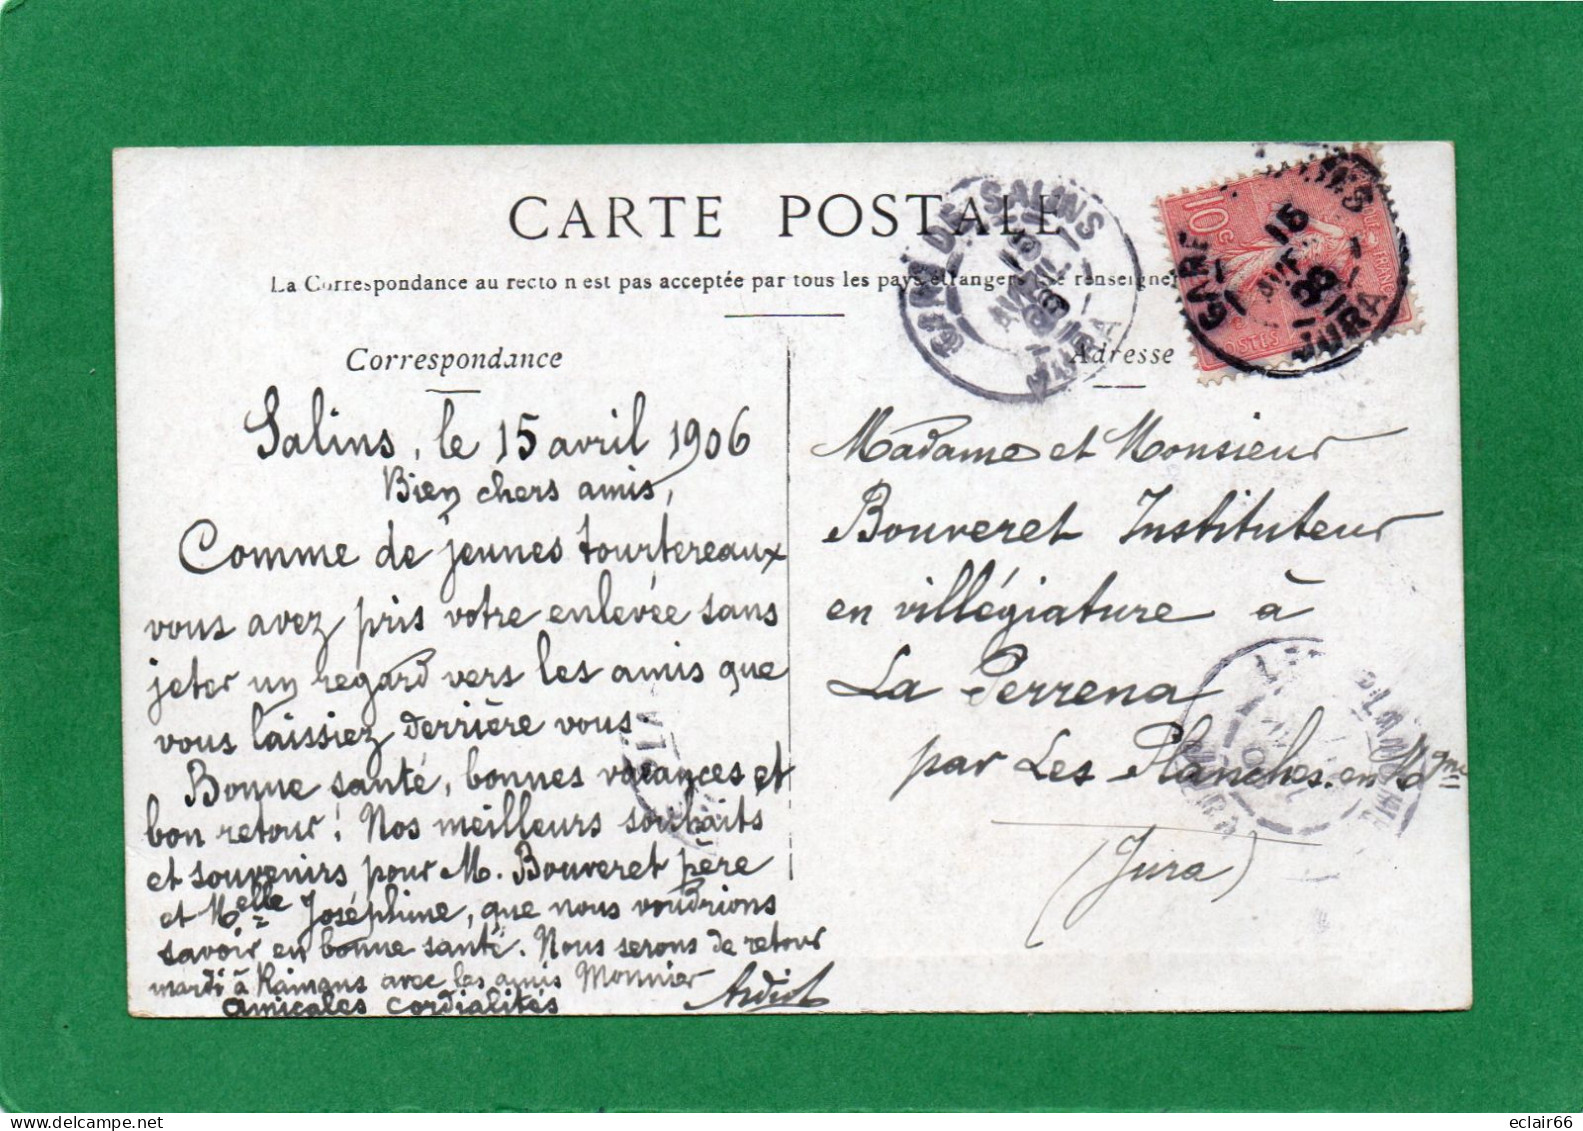 CARTE POSTALE
La Correspondance au recto n est pas acceptée par tous les pays étrangers
Correspondance
Salins, le 15 avril 1906
Bien chers amis,
Comme de jeunes tourtereaux
vous avez pris votre enlevée sans
jeter un regard vers les amis que
vous laissiez derrière vous.
Bonne santé, bonnes vacances et
bon retour! Nos meilleurs souhaits
et souvenirs pour M. Bouveret père
et Melle Joséphine, que nous voudrions
savoir en bonne santé. Nous serons de retour
mardi à Rainans avec les amis Monnier
Amicales cordialités
Adresse
Madame et Monsieur
Bouveret Instituteur
en villégiature à
La Perrena
par Les Planches en Mgne
(Jura)
GARE DE SALINS
15
AVRIL
JURA
10c
POSTES
GARE
15
JURA
eclair66